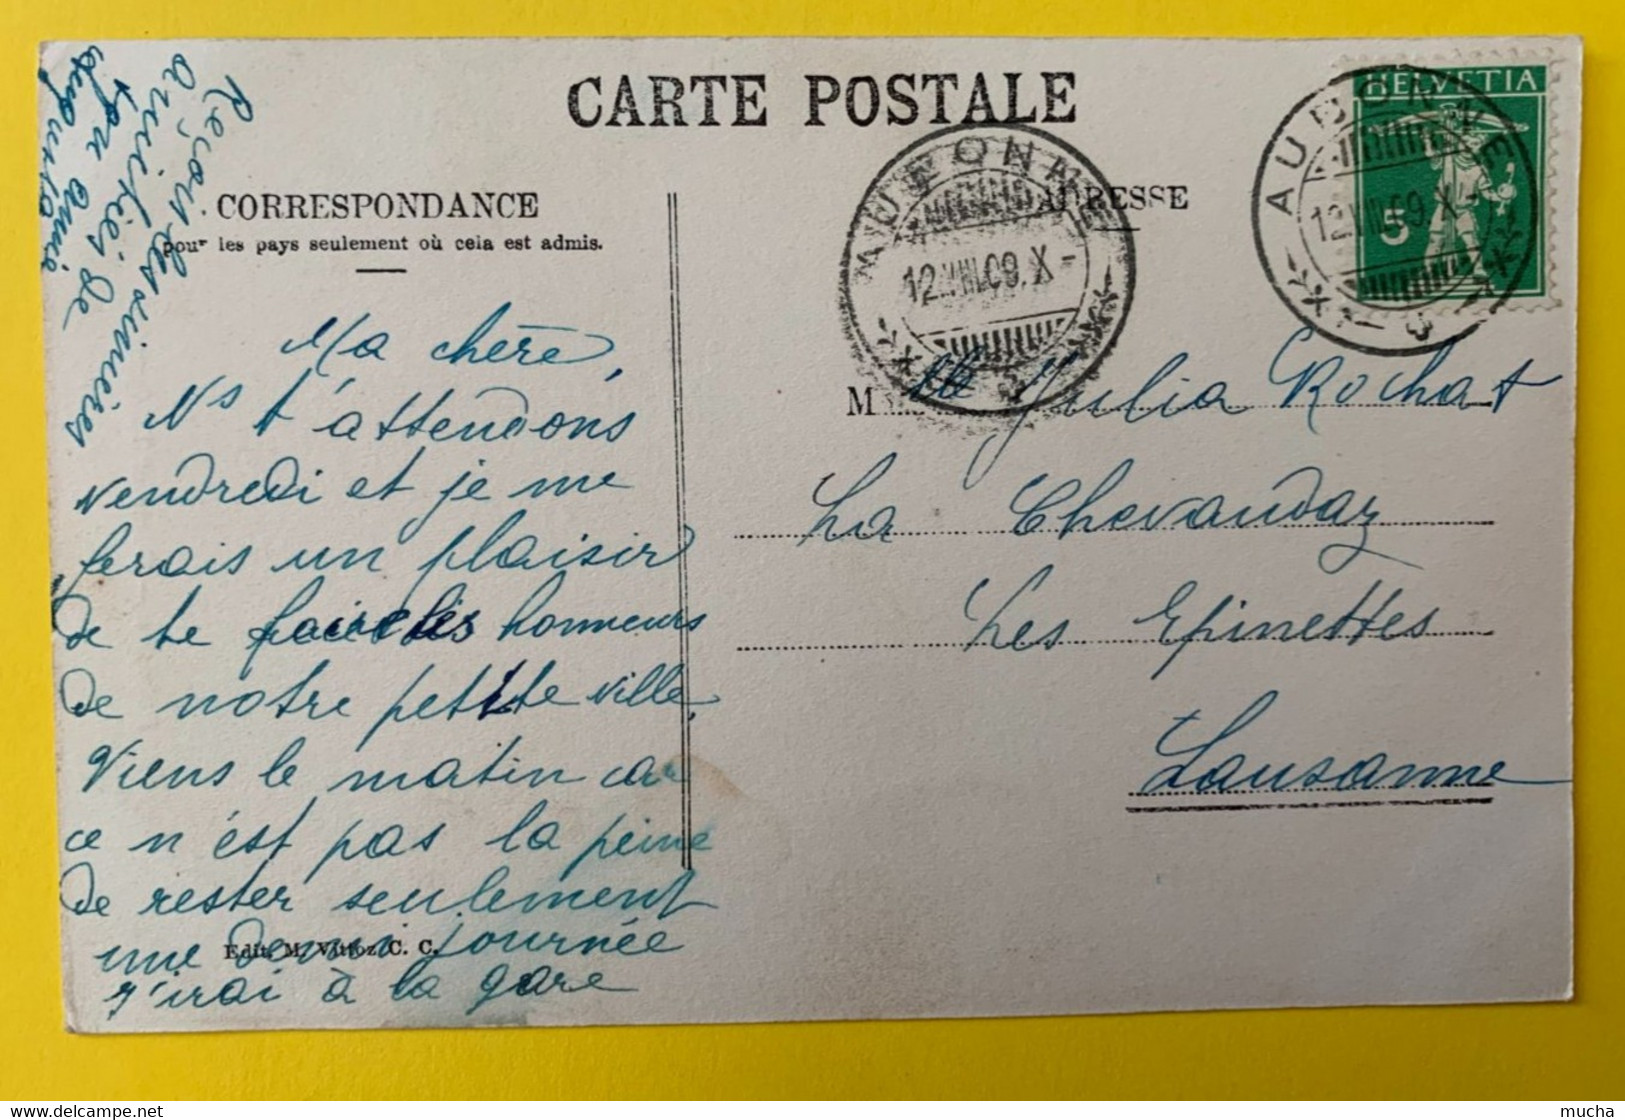 CARTE POSTALE
CORRESPONDANCE
pour les pays seulement où cela est admis.
ADRESSE
HELVETIA
5
AUBONNE
12.VIII.09.X-
AUBONNE
12.VIII.09.X-
Ma chère,
Ns t'attendons
vendredi et je me
ferais un plaisir
de te faire les honneurs
de notre petite ville.
Viens le matin car
ce n'est pas la peine
de rester seulement
une demi journée
J'irai à la gare
Reçois les
amitiés de
ton amie
Augusta
M lle Julia Rochat
La Chevauday
Les Epinettes
Lausanne
Edit. M. Vittoz C. C.
mucha